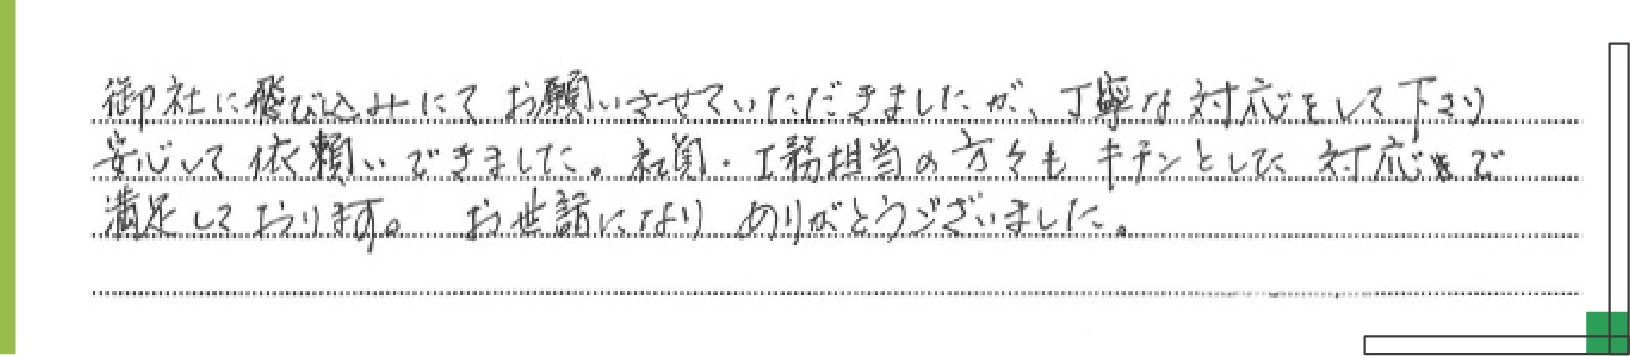 御社に飛び込みにてお願いさせていただきましたが、丁寧な対応をして下さり
安心して依頼いできました。社員・工務担当の方々もキチンとした対応で
満足しております。 お世話になりありがとうございました。